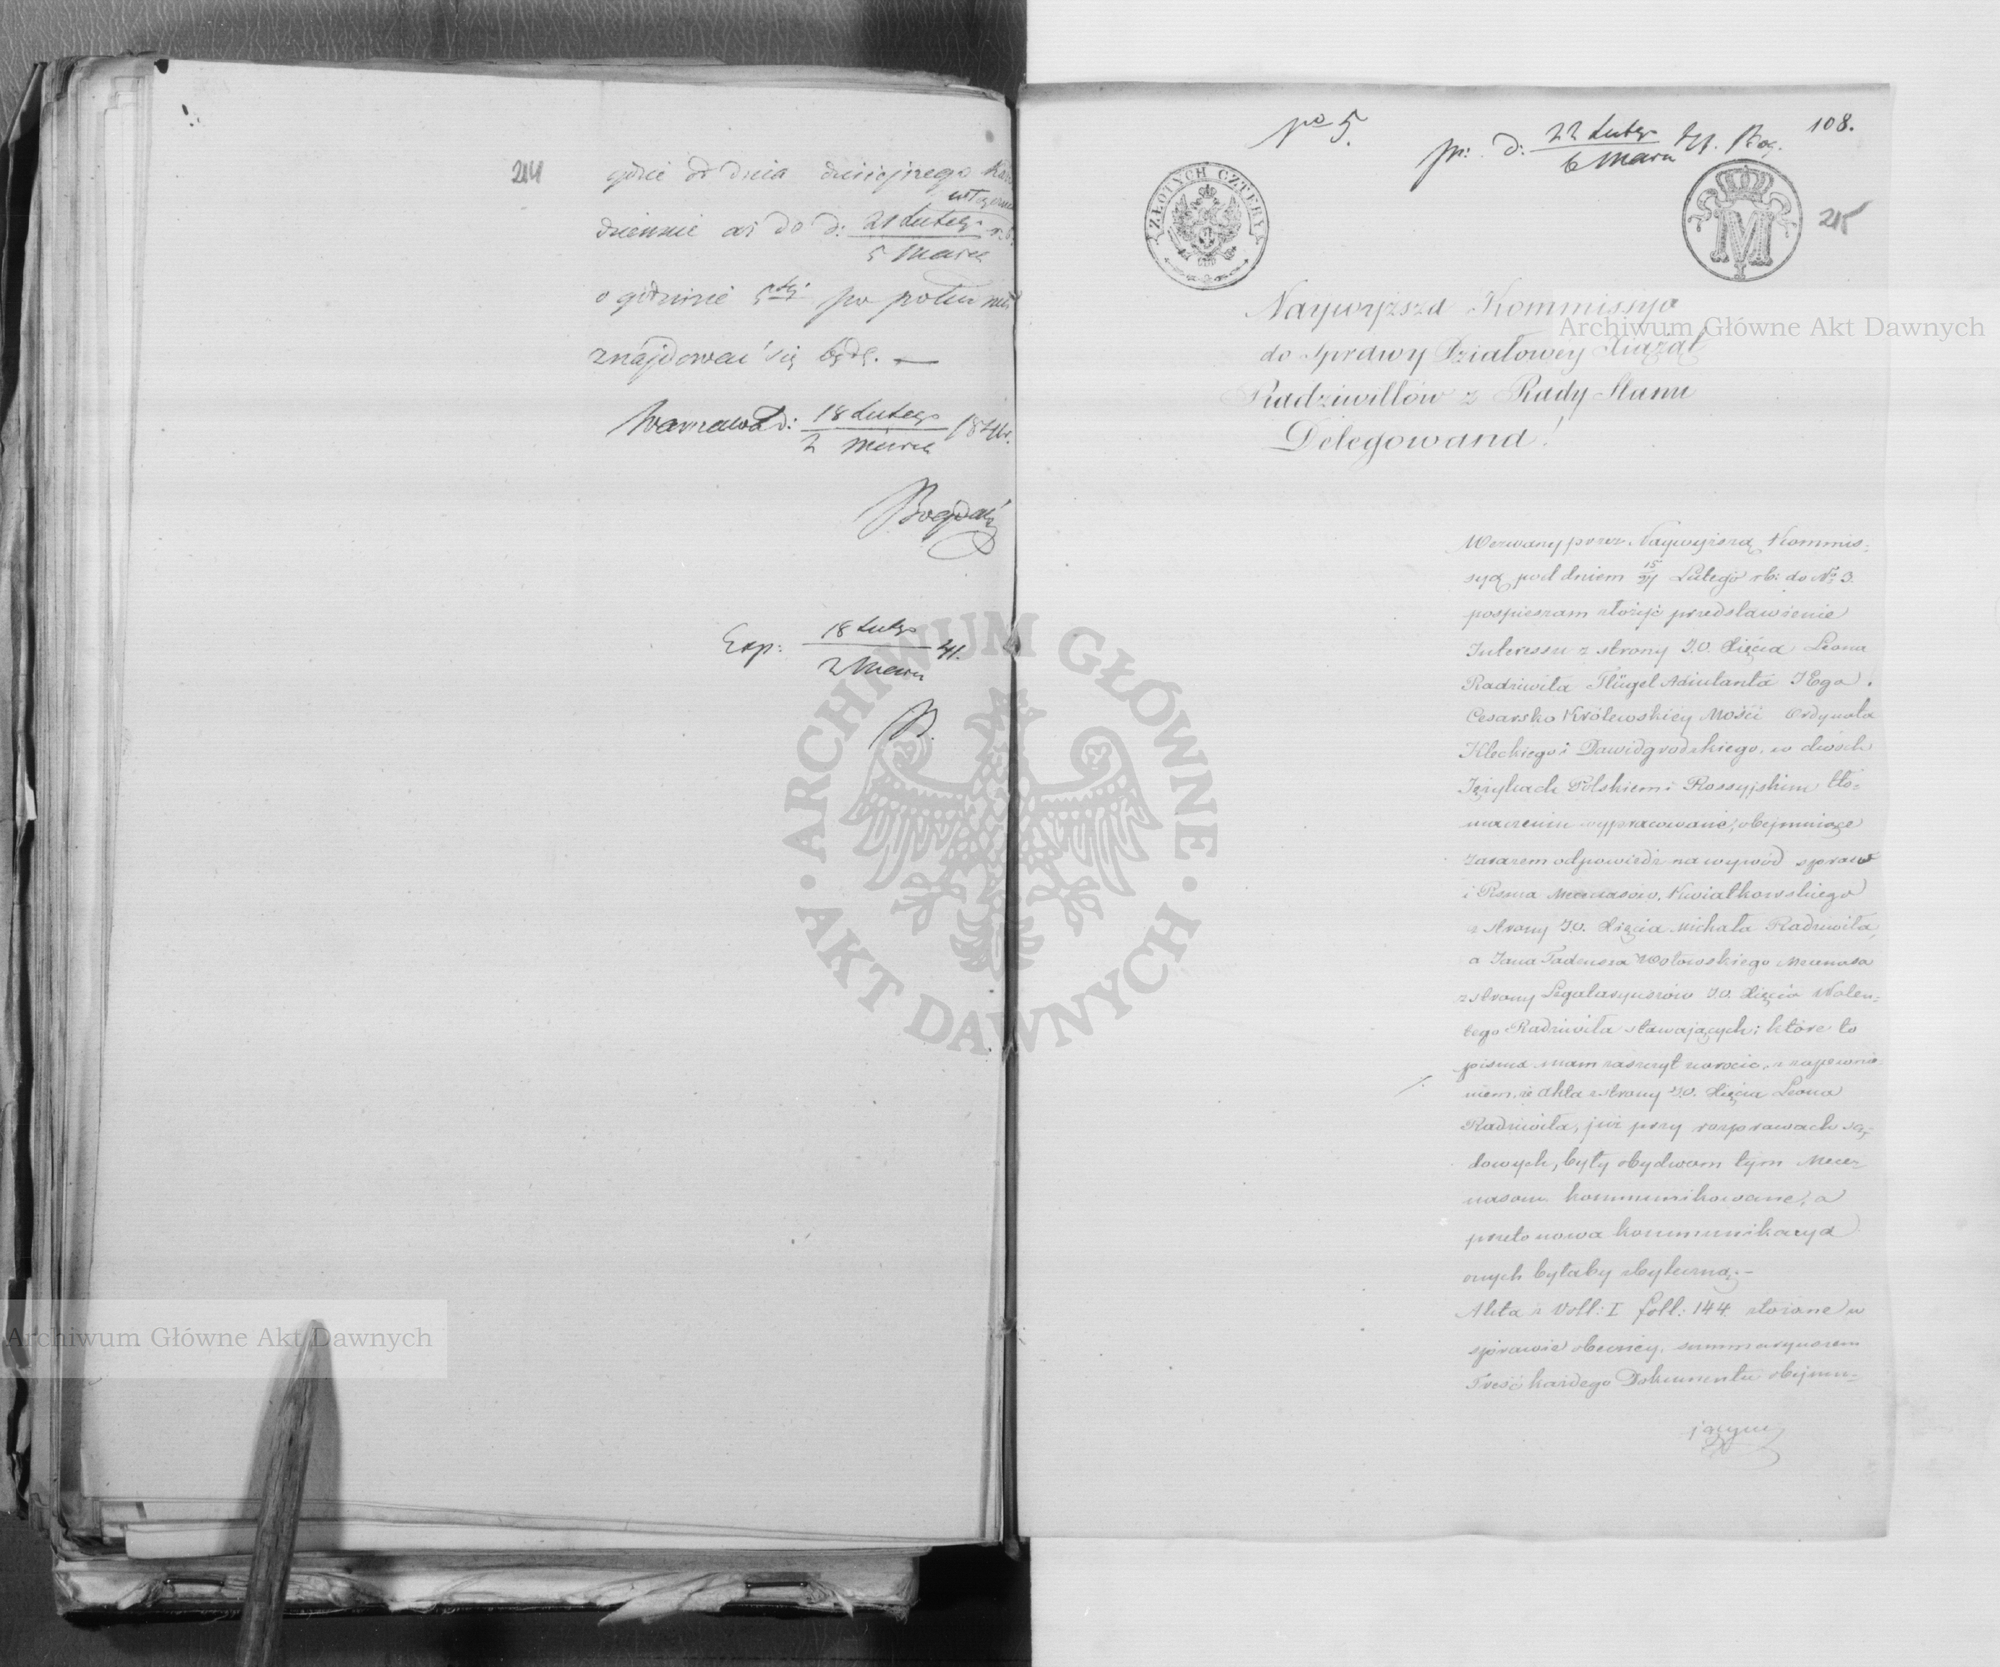 214
gdzie od dnia dzisiejszego
włącznie
dziennie aż do d: 21 Lutego
5 Marca
o godzinie 5tej po południu
znajdować się będę. —
Warszawa d: 18 Lutego 1841 r.
2 Marca
Exp: 18 Lutego 41.
2 Marca
B.
No 5.
pr: d: 22 Lutego 41.
6 Marca
108.
ZŁOTYCH CZTERY
M
215
Naywyższa Kommissya
do Sprawy Działowey Xiążąt
Radziwiłłów z Rady Stanu
Delegowana!
Wezwany przez Naywyższą Kommis-
syą pod dniem 15/27 Lutego rb: do No 3.
pospieszam złożyć przedstawienie
Interessu z strony J.O. Xięcia Leona
Radziwiła Flügel Adiutanta JEgo
Cesarsko Królewskiey Mości Ordynata
Kleckiego i Dawidgrodzkiego, w dwóch
Językach Polskiem i Rossyjskim tło-
maczeniu wypracowane, obejmujące
zarazem odpowiedź na wywód spraw
i Pisma Mecenasów, Kwiatkowskiego
z strony J.O. Xięcia Michała Radziwiła,
a Jana Tadeusza Wołowskiego Mecenasa
z strony Legataryuszów J.O. Xięcia Walen-
tego Radziwiła stawających; które to
pisma mam zaszczyt zwrócić, z zapewnie-
niem, że akta z strony J.O. Xięcia Leona
Radziwiła, już przy rozprawach są-
dowych, były obydwom tym Mece-
nasom kommunikowane, a
przeto nowa kommunikacya
onych byłaby zbyteczną;—
Akta z Voll: I foll: 144 złożone w
sprawie obecney, summaryuszem
Treść każdego Dokumentu obejmu-
jącym
Archiwum Główne Akt Dawnych
Archiwum Główne Akt Dawnych
ARCHIWUM GŁÓWNE
AKT DAWNYCH